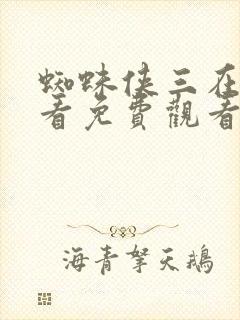 蜘蛛俠三在
看免費觀看
海青拏天鵝